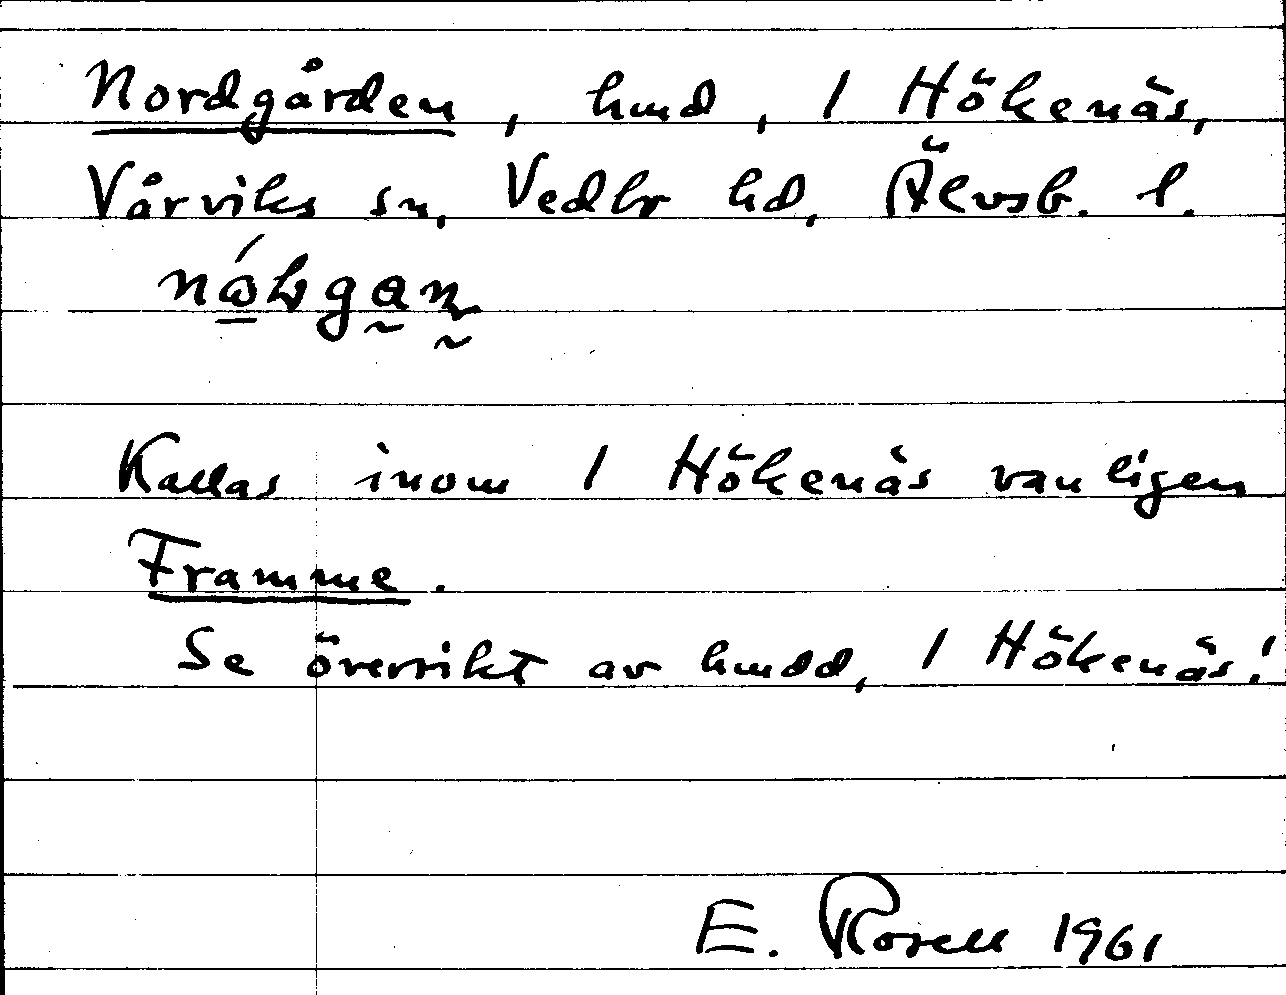 Nordgården, hmd, 1 Hökenäs,
Vårviks sn, Vedbo hd, Älvsb. l.
Kallas inom 1 Hökenäs vanligen
Framme.
Se översikt av hmdd, 1 Hökenäs!
E. Rosell 1961